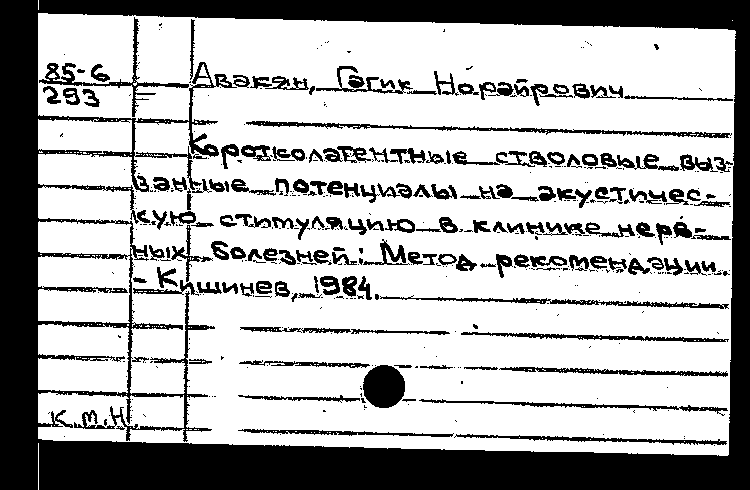 85-6
293
Авакян, Гагик Норайрович
Коротколатентные стволовые выз-
ванные потенциалы на акустичес-
кую стимуляцию в клинике нерв-
ных болезней: Метод. рекомендации.
- Кишинев, 1984.
к.м.н.